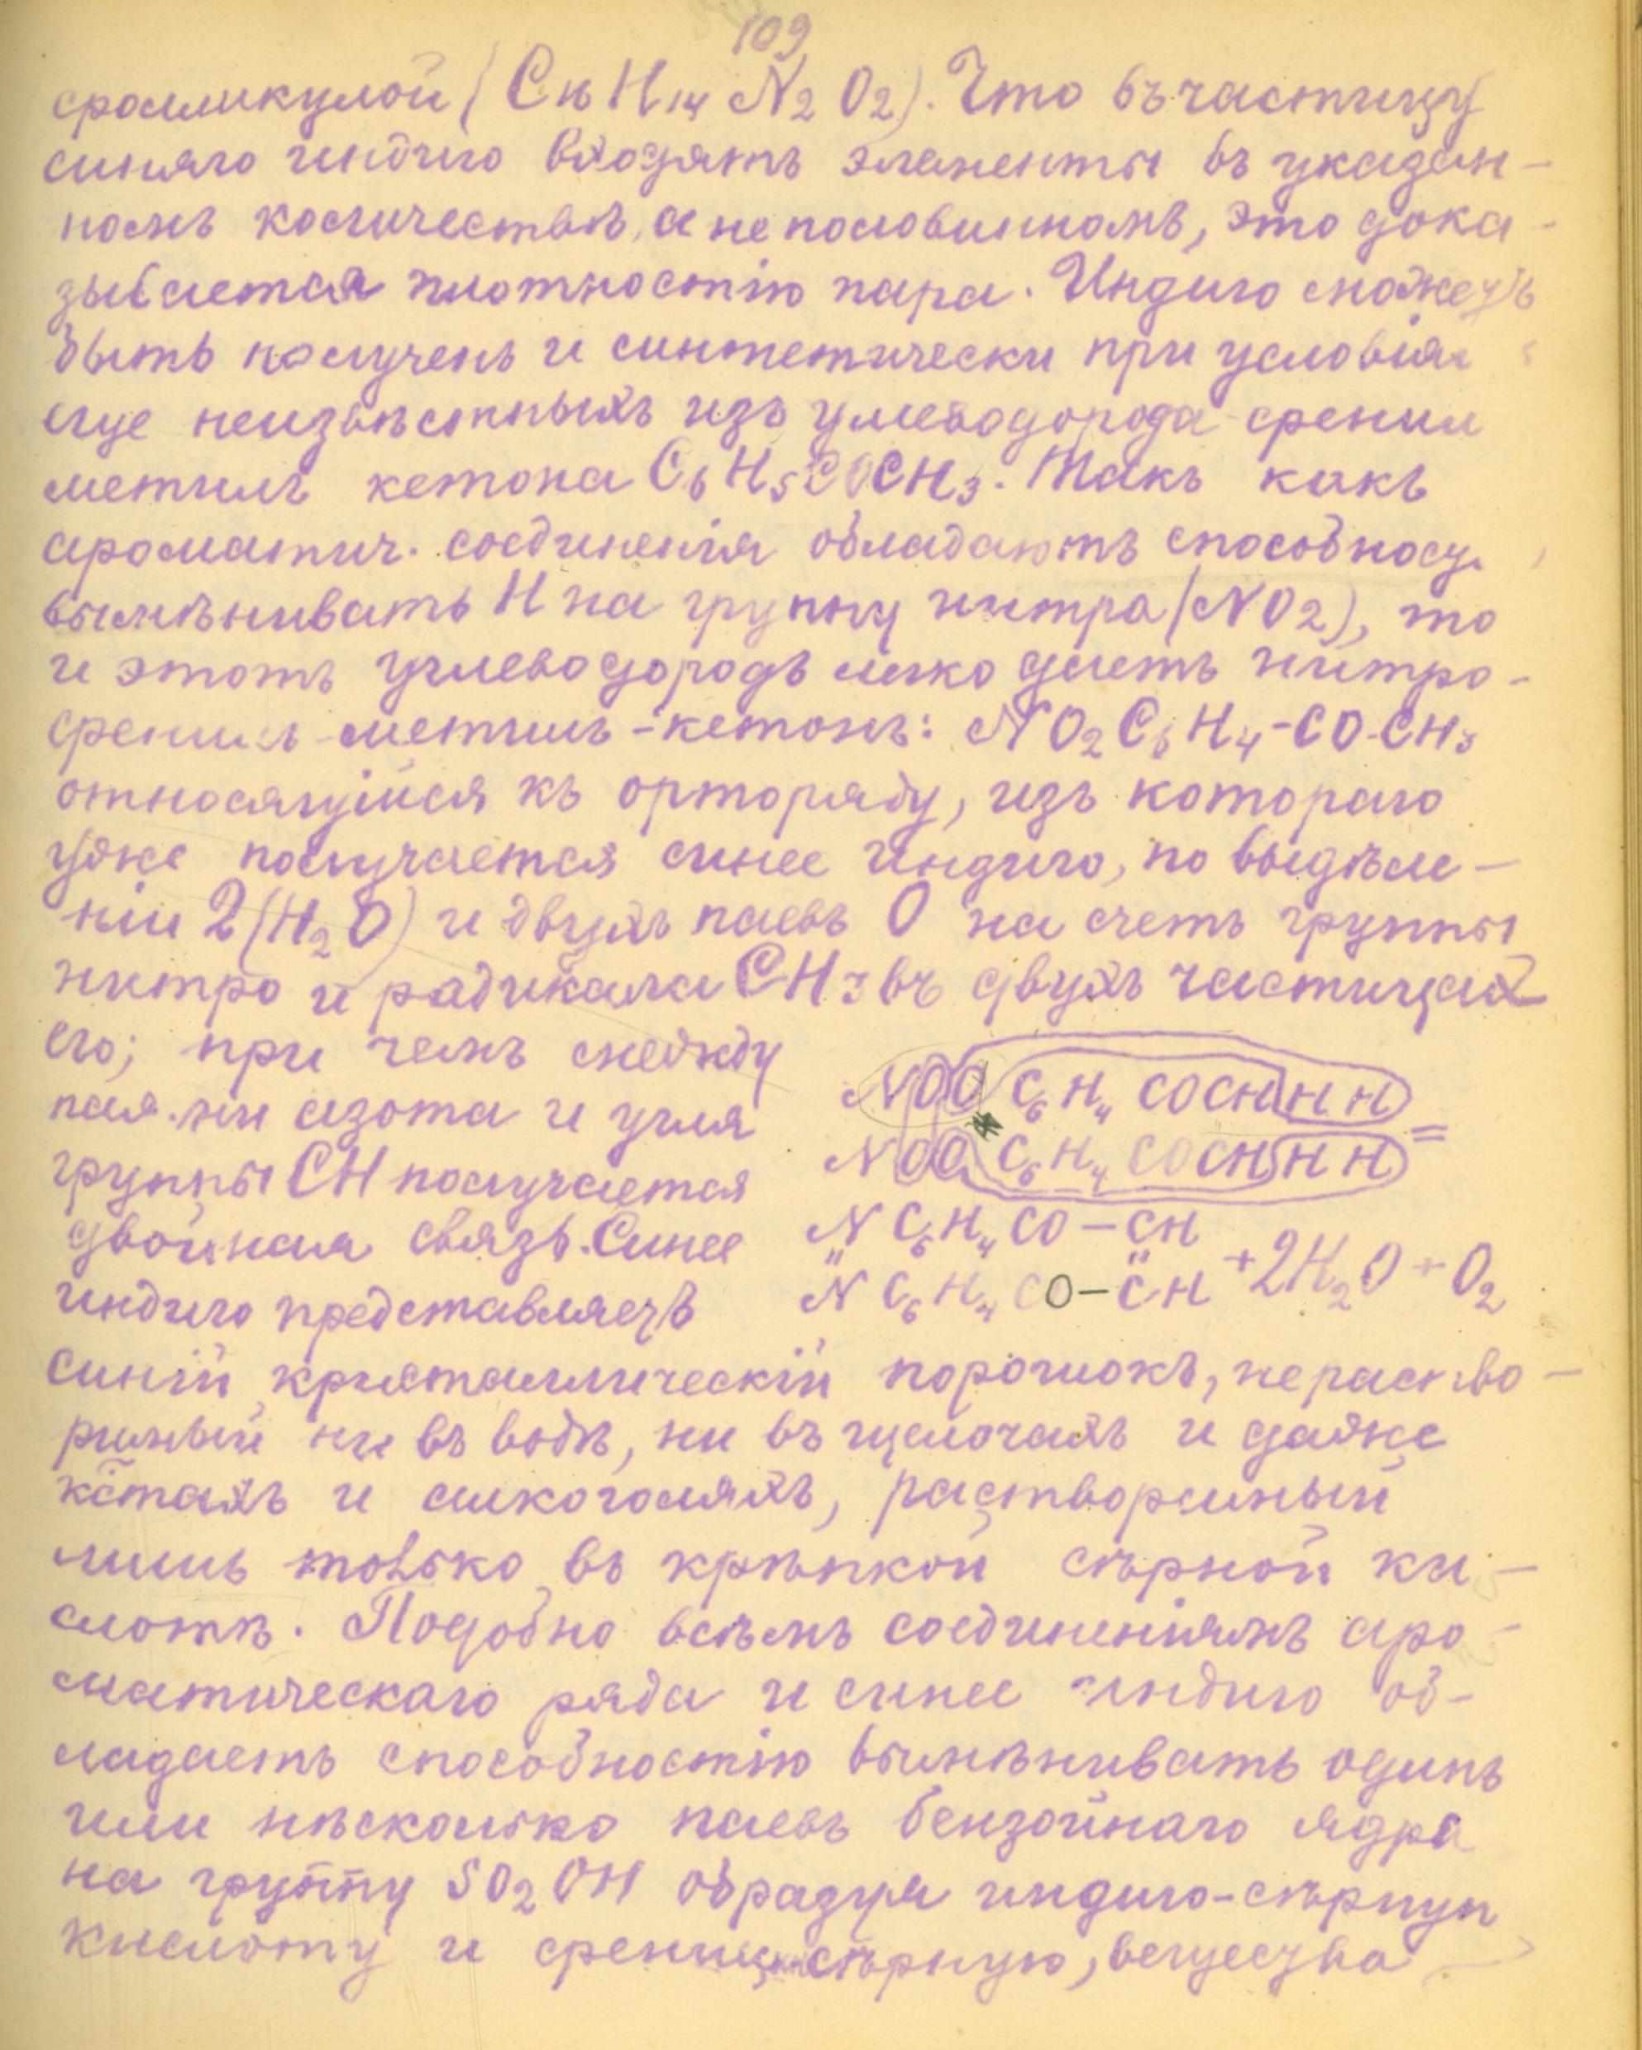 109
формулой (C16 H14 N2 O2). Что въ частицу
синяго индиго входятъ элементы въ указан-
номъ количествѣ, а не половинномъ, это дока-
зывается плотностію пара. Индиго можетъ
быть полученъ и синтетически при условія
еще неизвѣстныхъ изъ углеводорода фенил
метилъ кетона C6H5COCH3. Такъ какъ
ароматич. соединенія обладаютъ способност.
вымѣнивать H на группу нитра (NO2), то
и этотъ углеводородъ легко даетъ нитро-
фенилъ-метилъ-кетонъ: NO2C6H4-CO-CH3
относящійся къ орторяду, изъ котораго
уже получается синее индиго, по выдѣле-
ніи 2(H2O) и двухъ паевъ O на счетъ группы
нитро и радикала CH3 въ двухъ частицах
его; при чемъ между
паями азота и угля
группы CH получается
двойная связь. Синее
индиго представляетъ
NOO C6H4 COCHHH
NOO C6H4 COCHHH =
N C6H4 CO-CH
" "
N C6H4 CO-CH +2H2O+O2
синій кристаллическій порошокъ, нераство-
римый ни въ водѣ, ни въ щелочахъ и даже
к̅с̅тахъ и алкоголяхъ, растворимый
лишь только въ крѣпкой сѣрной ки-
слотѣ. Подобно всѣмъ соединеніямъ аро-
матическаго ряда и синее индиго об-
ладаетъ способностію вымѣнивать одинъ
или нѣсколько паевъ бензойнаго ядра
на группу SO2OH образуя индиго-сѣрную
кислоту и сѣрную, вещества